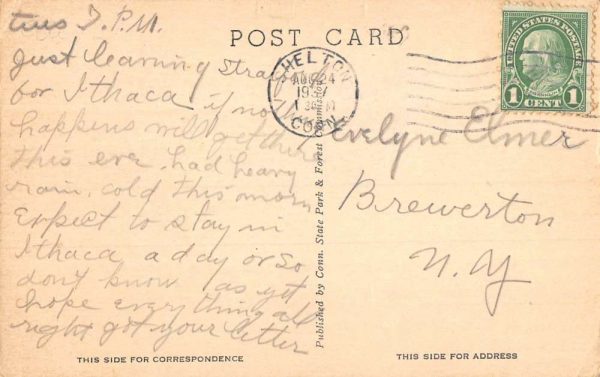 tues P.M.
POST CARD
Just leaving
for Ithaca if not
happens will get there
this eve. had heavy
rain, cold this morn
Expect to stay in
Ithaca a day or so
dont know as yet
hope everything all
right got your letter
THIS SIDE FOR CORRESPONDENCE
Published by Conn. State Park & Forest Commission
SHELTON
AUG 24
1937
CONN.
UNITED STATES POSTAGE
FRANKLIN
1 CENT 1
Evelyne Elmer
Brewerton
N.Y
THIS SIDE FOR ADDRESS